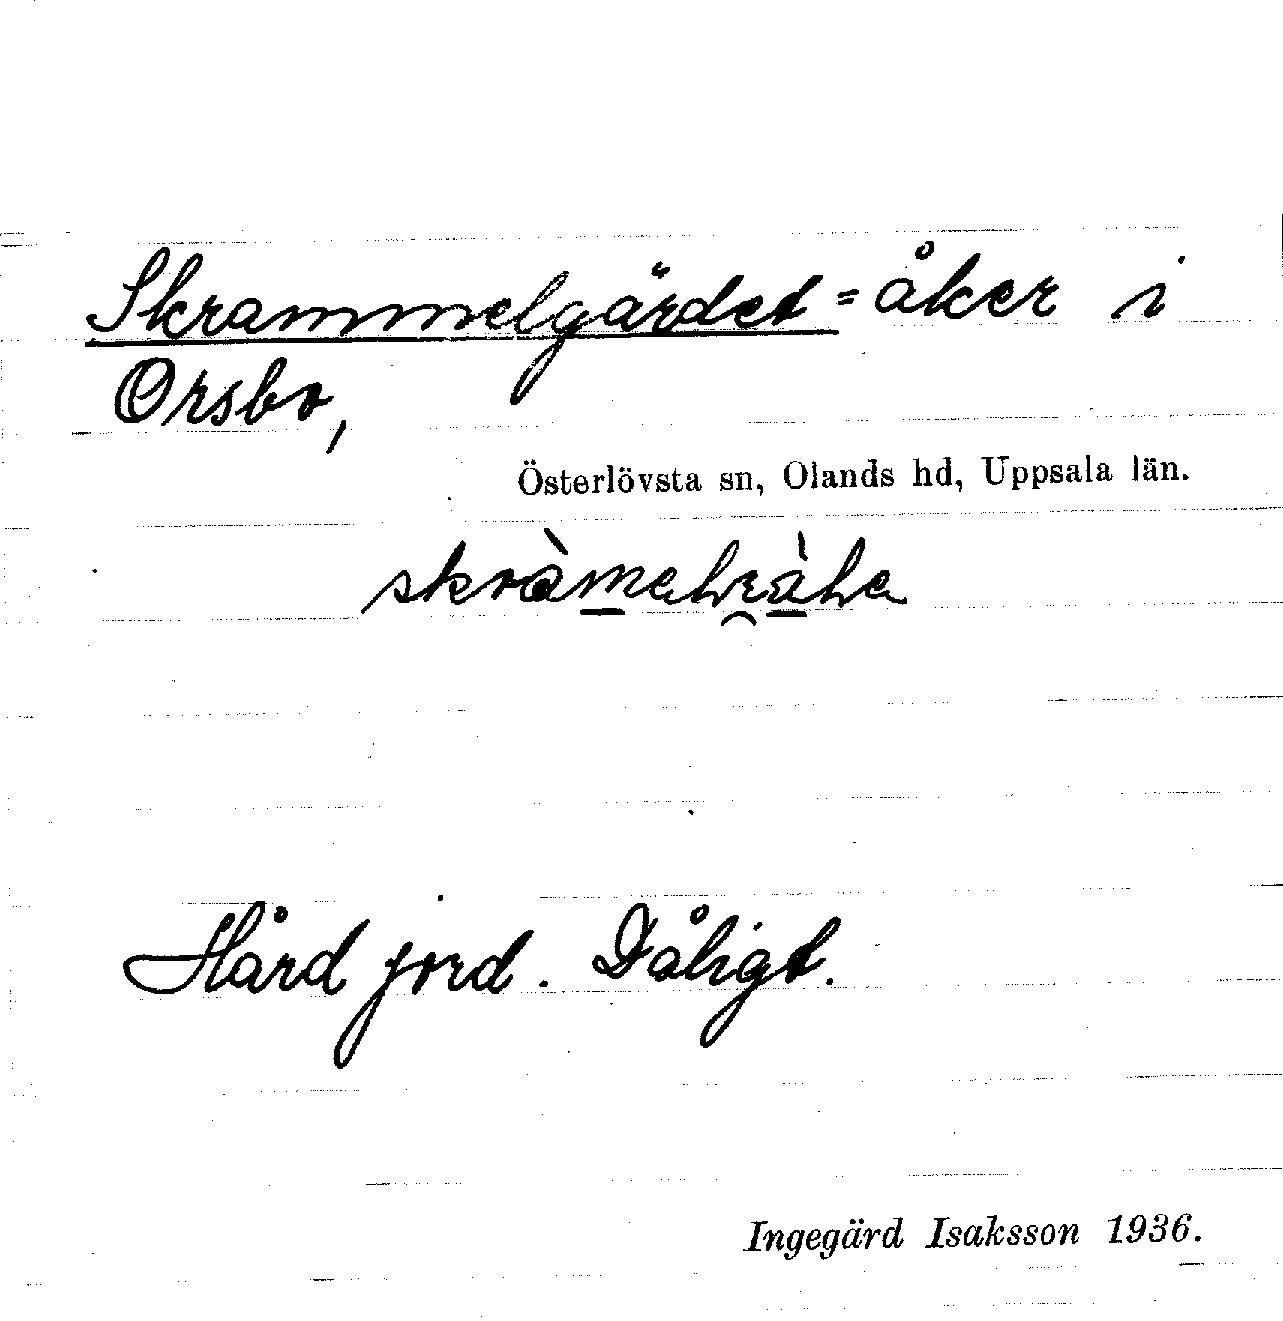 Skrammelgärdet = åker i
Orsbo,
Österlövsta sn, Olands hd, Uppsala län.
Hård jord. Dåligt.
Ingegärd Isaksson 1936.